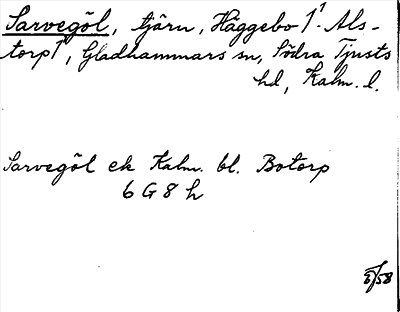 Sarvegöl, tjärn, Häggebo 1¹. Als-
torp 1¹, Gladhammars sn, Södra Tjusts
hd, Kalm. l.
Sarvegöl ek Kalm. bl. Botorp
6 G 8 h